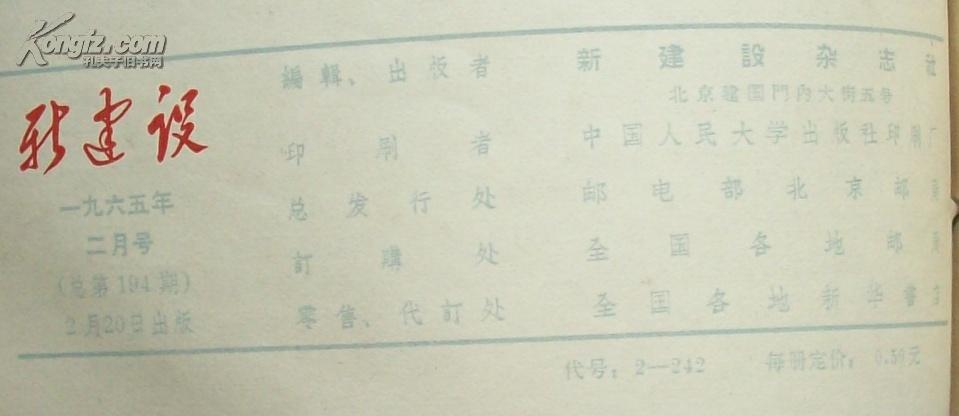 Kongfz.com
孔夫子旧书网
新建设
一九六五年
二月号
(总第194期)
2月20日出版
編輯、出版者 新建設杂志社
北京建国門內大街五号
印刷者 中国人民大学出版社印刷厂
总发行处 邮电部北京邮
訂購处 全国各地邮
零售、代訂处 全国各地新华書
代号：2—242 每册定价：0.50元